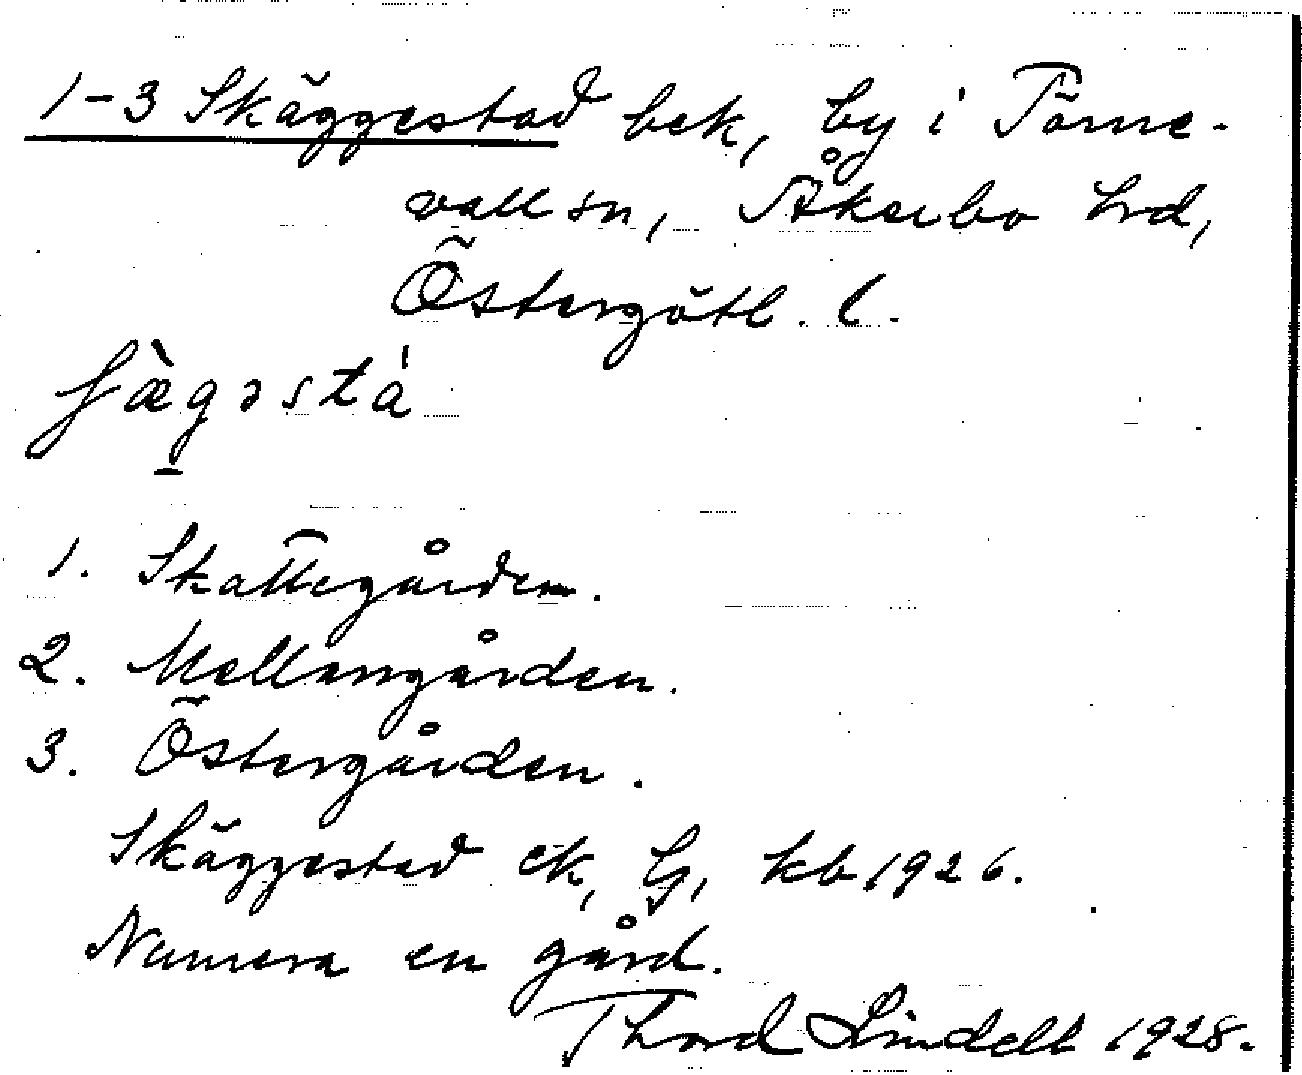 1-3 Skäggestad bek, by i Törne-
vall sn, Åkerbo hrd,
Östergötl. l.
ʃæ̀gəstá
1. Skattegården.
2. Mellangården.
3. Östergården.
Skäggestad ek, G, kb 1926.
Numera en gård.
Thord Lindell 1928.